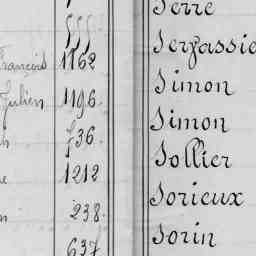 555 Serre
François 1162 Sergassie
Julien 1196 Simon
536 Simon
1212 Sollier
238 Sorieux
637 Sorin